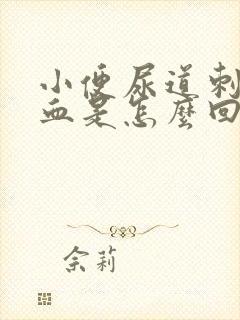 小便尿道刺
血是怎麼回
佘莉